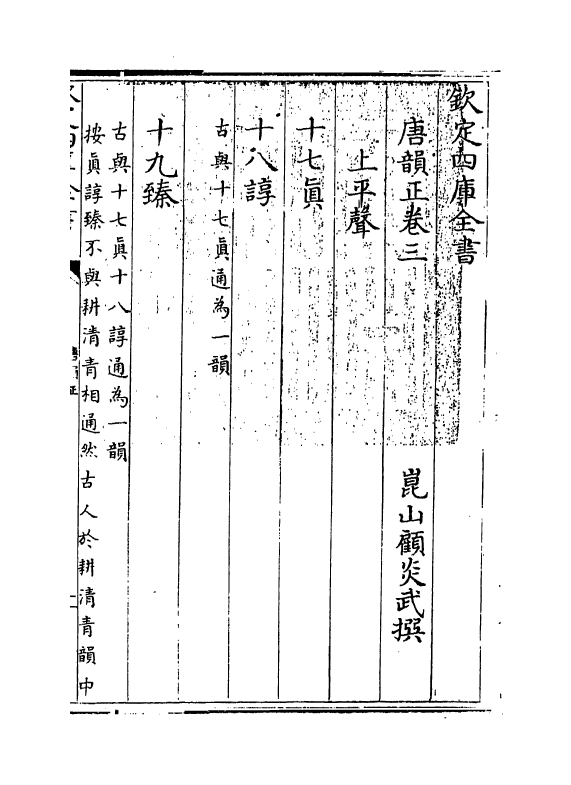 欽定四庫全書
唐韻正卷三
崑山顧炎武撰
上平聲
十七眞
十八諄
古與十七眞通為一韻
十九臻
古與十七眞十八諄通為一韻
按眞諄臻不與耕清青相通然古人於耕清青韻中